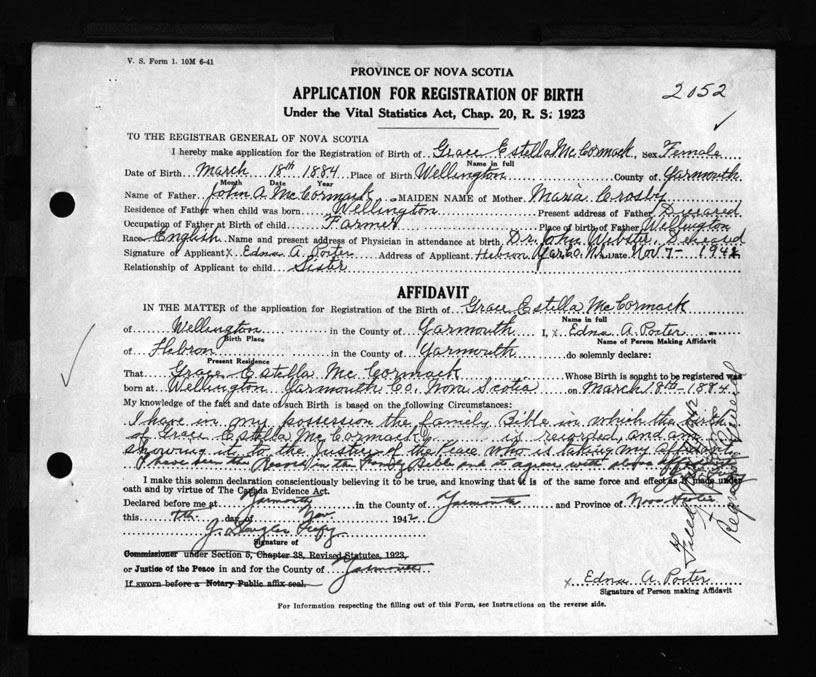 V. S. Form 1. 10M 6-41
PROVINCE OF NOVA SCOTIA
APPLICATION FOR REGISTRATION OF BIRTH
2052
Under the Vital Statistics Act, Chap. 20, R. S. 1923
TO THE REGISTRAR GENERAL OF NOVA SCOTIA
I hereby make application for the Registration of Birth of Grace Estella McCormack, Sex Female
Name in full
Date of Birth March 18th 1884 Place of Birth Wellington County of Yarmouth
Month Date Year
Name of Father John A. McCormack MAIDEN NAME of Mother Maria Crosby
Residence of Father when child was born Wellington Present address of Father
Occupation of Father at Birth of child Farmer Place of birth of Father Wellington
Race English Name and present address of Physician in attendance at birth Dr. John Webster,
Signature of Applicant x Edna A. Porter Address of Applicant Hebron Yar. Co. N.S. Date Nov 7 - 1942
Relationship of Applicant to child Sister
AFFIDAVIT
IN THE MATTER of the application for Registration of the Birth of Grace Estella McCormack
Name in full
of Wellington in the County of Yarmouth I, x Edna A. Porter
Birth Place Name of Person Making Affidavit
of Hebron in the County of Yarmouth do solemnly declare:
Present Residence
That Grace Estella McCormack Whose Birth is sought to be registered was
born at Wellington Yarmouth Co. Nova Scotia on March 18th - 1884
My knowledge of the fact and date of such Birth is based on the following Circumstances:
I have in my possession the family Bible in which the birth
of Grace Estella McCormack is recorded, and am
showing it to the Justice of the Peace who is taking my affidavit.
I have seen the Record in the Family Bible and it agrees with above
I make this solemn declaration conscientiously believing it to be true, and knowing that it is of the same force and effect as if made under
oath and by virtue of The Canada Evidence Act.
Declared before me at Yarmouth in the County of Yarmouth and Province of Nova Scotia
this 7th day of Nov 1942
J. Douglas
Signature of
Commissioner under Section 5, Chapter 38, Revised Statutes, 1923,
or Justice of the Peace in and for the County of Yarmouth
If sworn before a Notary Public affix seal.
x Edna A. Porter
Signature of Person making Affidavit
For Information respecting the filling out of this Form, see Instructions on the reverse side.